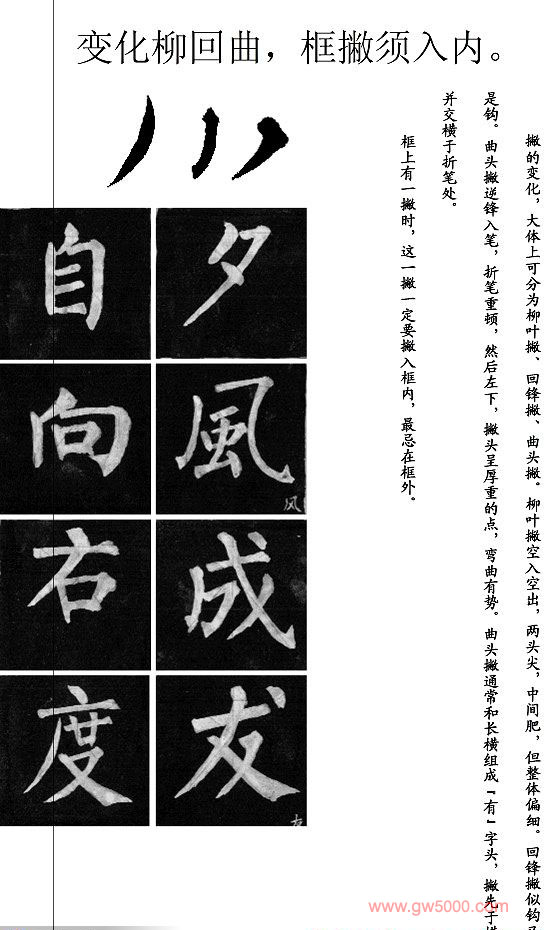 变化柳回曲，框撇须入内。
撇的变化，大体上可分为柳叶撇、回锋撇、曲头撇。柳叶撇空入空出，两头尖，中间肥，但整体偏细。回锋撇似钩
是钩。曲头撇逆锋入笔，折笔重顿，然后左下，撇头呈厚重的点，弯曲有势。曲头撇通常和长横组成「有」字头，撇先于横
并交横于折笔处。
框上有一撇时，这一撇一定要撇入框内，最忌在框外。
夕
風
风
成
犮
自
向
右
度
www.gw5000.com